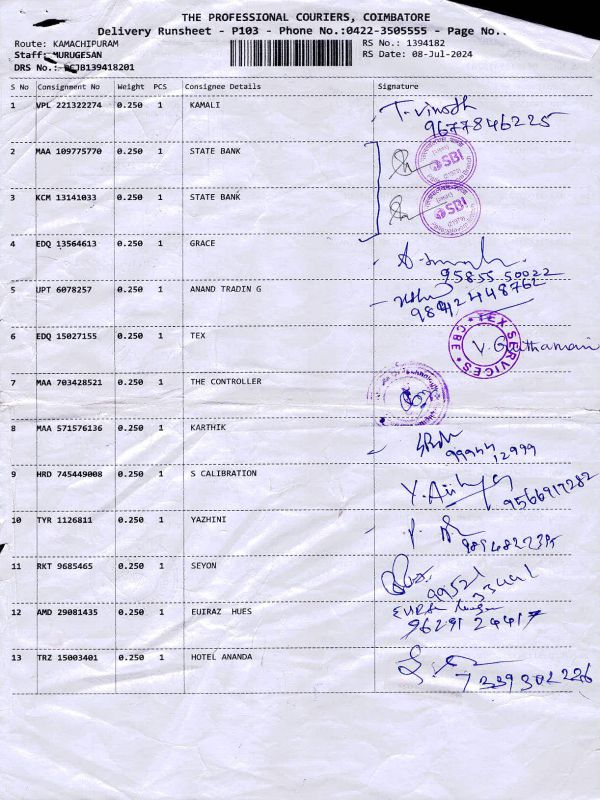 THE PROFESSIONAL COURIERS, COIMBATORE
Delivery Runsheet - P103 - Phone No.:0422-3505555 - Page No..
Route: KAMACHIPURAM RS No.: 1394182
Staff: MURUGESAN RS Date: 08-Jul-2024
DRS No.: B139418201
S No Consignment No Weight PCS Consignee Details Signature
1 VPL 221322274 0.250 1 KAMALI T. Vinoth
9677846225
2 MAA 109775770 0.250 1 STATE BANK SBI
3 KCM 13141033 0.250 1 STATE BANK SBI
4 EDQ 13564613 0.250 1 GRACE
95855 50022
5 UPT 6078257 0.250 1 ANAND TRADIN G
9842448762
6 EDQ 15027155 0.250 1 TEX TEX SERVICES CBE V.
7 MAA 703428521 0.250 1 THE CONTROLLER
8 MAA 571576136 0.250 1 KARTHIK
99944 12999
9 HRD 745449008 0.250 1 S CALIBRATION
9566917282
10 TYR 1126811 0.250 1 YAZHINI
11 RKT 9685465 0.250 1 SEYON
12 AMD 29081435 0.250 1 EUIRAZ HUES
96291 24417
13 TRZ 15003401 0.250 1 HOTEL ANANDA
7339302226